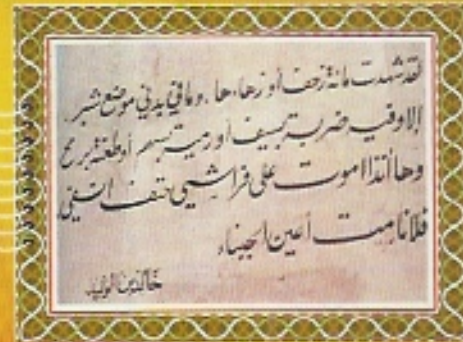 لقد شهدت مائة زحف أو زهاءها. وما في بدني موضع شبر.
الا وفيه ضربة بسيف أو رمية بسهم أو طعنة برمح
وها أنذا اموت على فراشي حتف أنفي
فلا نامت أعين الجبناء
خالد بن الوليد